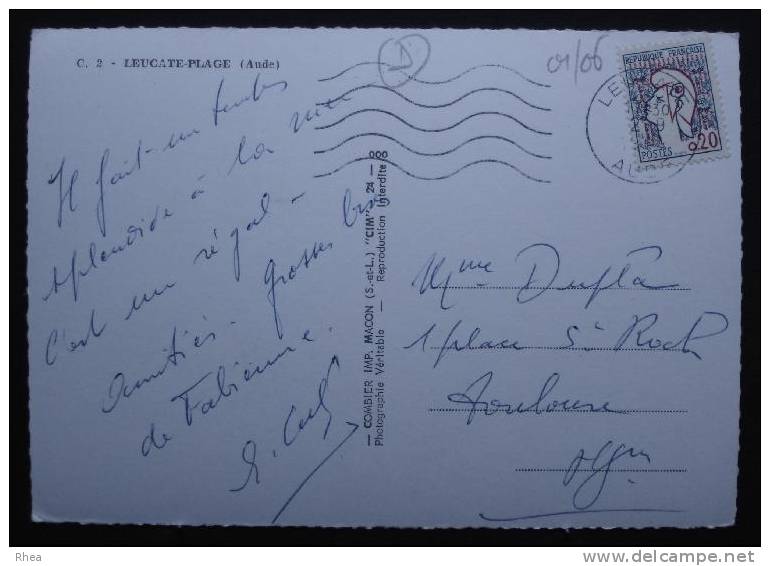 C. 2 - LEUCATE-PLAGE (Aude)
D
01/06
REPUBLIQUE FRANÇAISE
0,20
POSTES
LE
AUDE
Il fait un temps
splendide à la mer
c'est un régal -
Amitiés. Grosses bises
de Fabienne.
— COMBIER IMP. MACON (S.-et-L.) "CIM" 24 — 000
Photographie Véritable — Reproduction Interdite
Mme Dupla
1 place St Roch
Toulouse
Hgne
Rhea
delcampe.net